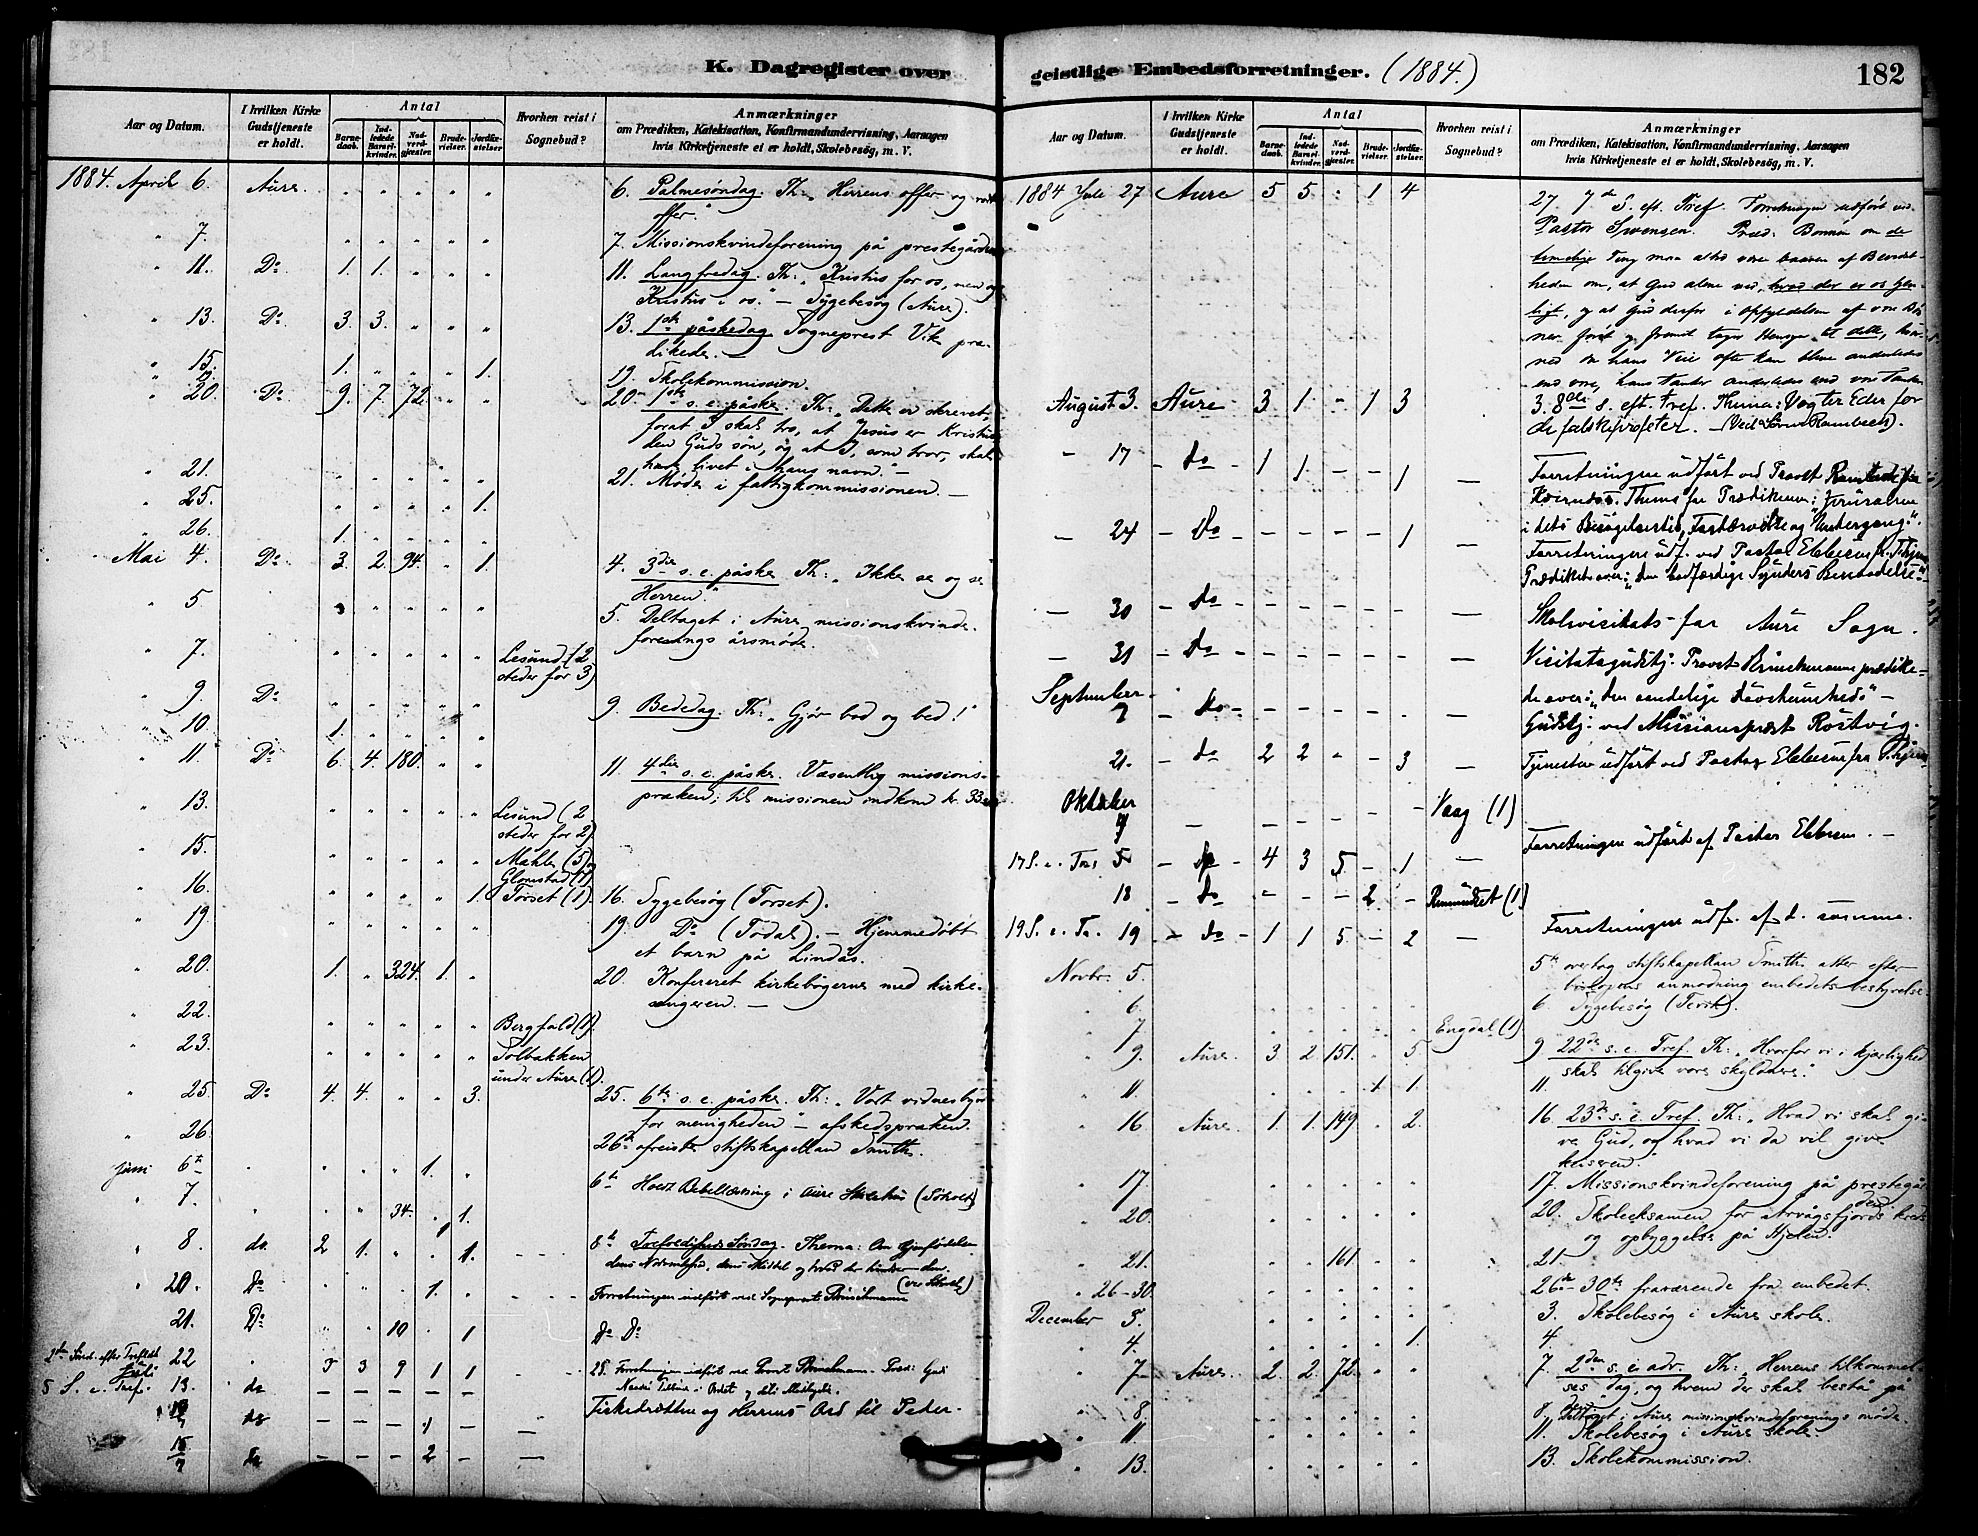 K. Dagregister over
Aar og Datum.
I hvilken Kirke Gudstjeneste er holdt.
Antal
Barnedaab.
Indledede Barselkvinder.
Nadverdgjester.
Brudevielser.
Jordfæstelser.
Hvorhen reist i Sognebud?
Anmærkninger
om Prædiken, Katekisation, Konfirmandundervisning, Aarsagen
hvis Kirketjeneste ei er holdt, Skolebesög, m. V.
1884. April 6. Aure. 6. Palmesøndag. Th: "Herrens offer og vort
offer."
" 7. 7. Missionskvindeforening på prestegården
" 11. Do. 1. 1. 11. Langfredag. Th: "Kristus for os, men og
Kristus i os." – Sygebesøg (Aure).
" 13. Do. 3. 3. 13. 1ste påskedag. Sogneprest Vik præ-
dikede. –
" 15. 1. 1.
19. 19. Skolekommission.
" 20. Do. 9. 7. 72. 20. 1ste s. e. påske. Th: "Dette er skrevet,
forat I skal tro, at Jesus er Kristus
den Guds søn, og at I, som tror, skal
have livet i hans navn." –
" 21. 21. Møde i fattigkommissionen. –
" 25. 1.
" 26. 1.
Mai 4. Do. 3. 2. 94. 1. 4. 3die s. e. påske. Th: "Ikke se og se
Herren."
" 5. 5. Deltaget i Aure missionskvinde-
forenings årsmøde.
" 7. Lesund (2
steder for 3)
" 9. Do. 9. Bededag. Th: "Gjør bod og bed!"
" 10. 1.
" 11. Do. 6. 4. 180. 11. 4die s. e. påske. Væsentlig missions-
præken; til missionen indkom kr. 33
" 13. Lesund (2
steder for 2).
" 15. Mæhle (5) og
Glomstad (1).
" 16. 1. Torset (1). 16. Sygebesøg (Torset).
" 19. 19. Do (Todal). – Hjemmedøbt
et barn på Lindås.
" 20. 1. 324. 1. 20. Konfereret kirkebøgerne med kirke-
sangeren. –
" 22. Bergfald (1).
" 23. Solbakken
under Aure (1).
" 25. Do. 4. 4. 3. 25. 6te s. e. påske. Th: "Vort vidnesbyrd
for menigheden" – afskedspræken.
" 26. 26de afreiste stiftskapellan Smith.
Juni 6te 1. 6te Holdt Bibellæsning i Aure Skolehus
" 7. 34. 1.
" 8. do. 2 1. 1. 8de Trefoldigheds Søndag. Thema: Om Gjenfødelsen
dens Nødvendighed, dens Middel og hvad der hindrer den.
" 20. Do 1. Forretningen udført ved Sogneprest Brinchmann
21. Do 10 1 do Do
2den Sønd. efter Trefold. 22 3 3 9 1 1 Forretningen udført ved Provst Brinchmann.
5 S. e. Tref. 13. do – – – – – Fiskedrætten og Herrens Ord til Peder.
do – – – 1 –
15/7 do – – – 2 – –
geistlige Embedsforretninger. (1884.)
182
Aar og Datum.
I hvilken Kirke Gudstjeneste er holdt.
Antal
Barnedaab.
Indledede Barselkvinder.
Nadverdgjester.
Brudevielser.
Jordfæstelser.
Hvorhen reist i Sognebud?
Anmærkninger
om Prædiken, Katekisation, Konfirmandundervisning, Aarsagen
hvis Kirketjeneste ei er holdt, Skolebesög, m. V.
1884 Juli 27 Aure 5 5 1 4 27. 7de S. eft. Tref. Forretningen udført ved
Pastor Swensen. Præd: Bønnen om de
timelige Ting maa altid være baaren af Bevidst-
heden om, at Gud alene ved, hvad der er os gavn-
ligt, og at Gud derfor i Opfyldelsen af vore Bøn-
ner først og fremst tager Hensyn til dette,
om hans Veie ofte kan blive anderledes
end vore, hans Tanker anderledes end vore Tanker
August 3. Aure 3 1 – 1 3 3. 8de S. eft. Tref. Thema: Vogter Eder for
de falske profeter.
– 17 – do – 1 1 – – 1 – Forretningen udført ved Provst
Thema for Prædikenen: "Jerusalem
i dets Besøgelsestid, Fordærvelse og Undergang".
– 24 – do – – – – 1 – Forretningen udf. ved Pastor Ebbesen
Prædiket over: "den bodfærdige Synders Benaadelse"
– 30 – do – – – – – – – Skolevisitats for Aure Sogn.
– 31 – do – – – – – – – Visitatsgudstj. Provst Brinchmann prædike-
de over: "den aandelige Døvstumhed" –
September 7 – do – – – – – – – Gudstj. ved Missionsprest Rostvig.
21. – do 2 2 – – 3 – Tjenesten udført ved Pastor Ebbesen fra
Oktober
7 – – – – – – Vaag (1)
17 S. e. Tref 5 – do – 4 3 5 – 1 – Forretningen udført af Pastor Ebbesen. –
18 – do – – – 2. – (1)
19 S. e. Tr. 19 – do – 1 1 5 – 2 – Forretningen udf. af d. samme.
Novbr. 5. 5te overtog stiftskapellan Smith atter efter
biskopens anmodning embedets bestyrelse.
6. 6 Sygebesøg
" 7. Engdal (1).
" 9. Aure. 3 2 151. 5. 9 22de s. e. Tref. Th: "Hvorfor vi i kjærlighed
skal tilgive vore skyldnere."
" 11. 1. 11.
" 16. Aure. 1. 1. 149 2. 16. 23de s. e. Tref. Th: "Hvad vi skal gi-
ve Gud, og hvad vi da vil give
keiseren."
" 17. 17. Missionskvindeforening på prestegår-
den
" 20. 20. Skoleeksamen for Arvågsfjords kreds
og opbyggelse på Hjelen.
" 21. 161 21.
" 26–30. 26de–30te fraværende fra embedet.
December 3. 3. Skolebesøg i Aure skole.
" 4. 1. 4.
" 7 Aure. 2. 2. 72. 7. 2den s. i adv. Th: Herrens tilkommel-
ses dag, og hvem der skal bestå på
den
" 8. 8 Deltaget i Aure missionskvindeforenings møde.
" 11. 11. Skolebesøg i Aure skole.
" 13. 13. Skolekommission.